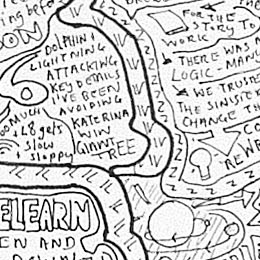 ing befo
ON
DOLPHIN &
LIGHTNING
ATTACKING
KEY DETAILS
I'VE BEEN
AVOIDING
KATERINA
WIN
GIANT
TREE
MUCH
+ L8 gets
slow
+ sloppy
FOR THE
STORY TO
WORK
THERE WAS A
LOGIC-MAN
WE TRUS
THE SINISTE
CHANGE T
CO
REW
ELEARN
EN AND